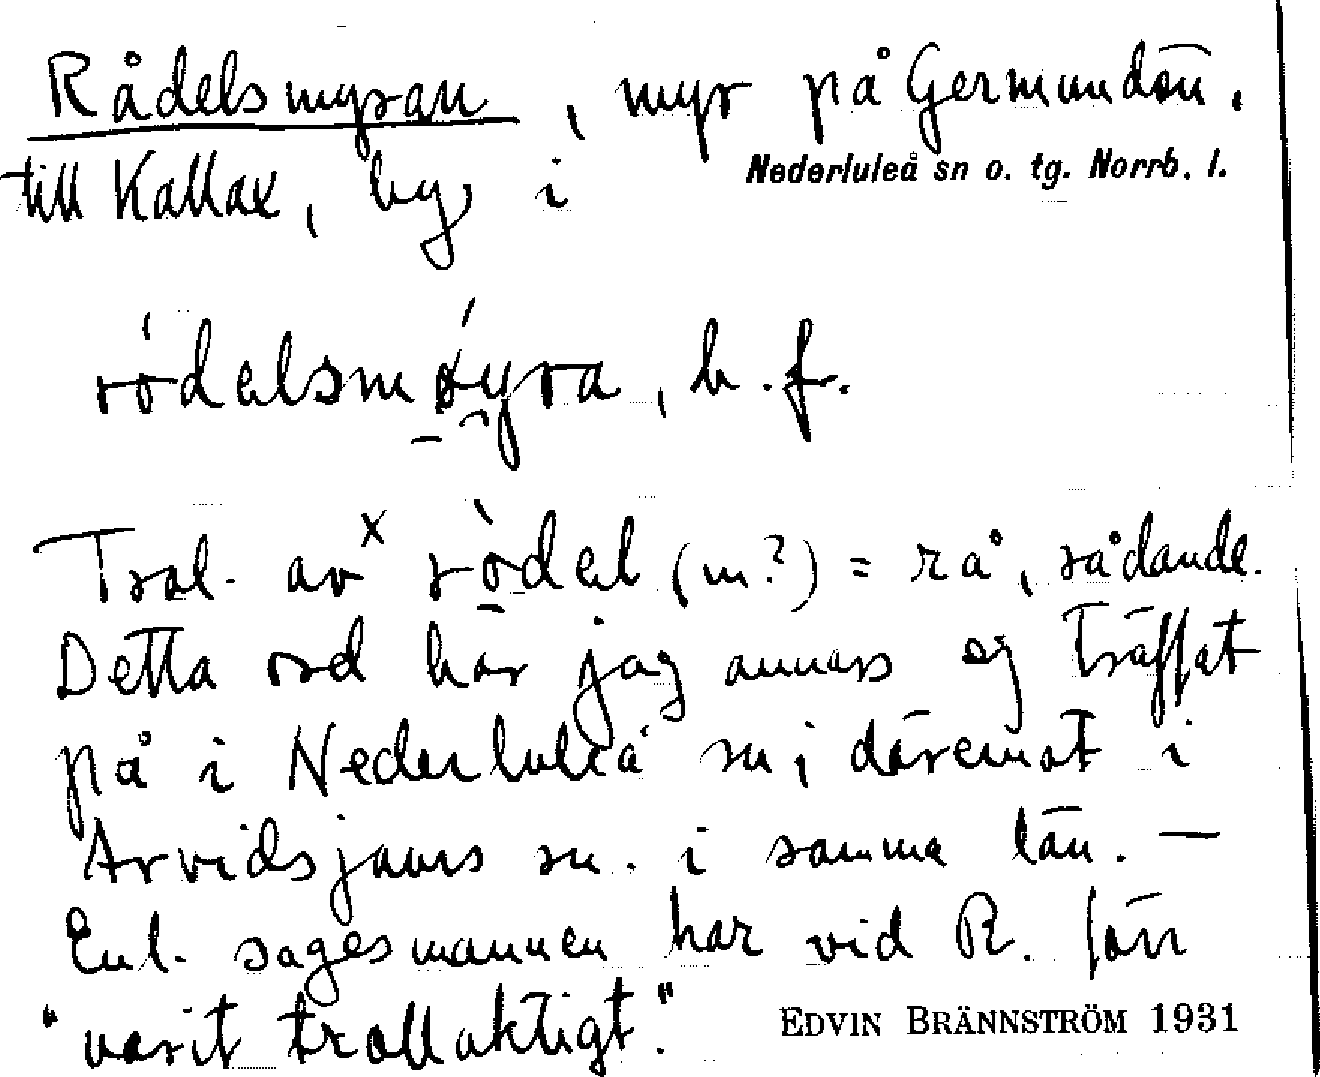 Rådelsmyran, myr på Germundön,
till Kallax, by i Nederluleå sn o. tg. Norrb. l.
ródelsmøyra, b. f.
Trol. av x ròdel (m?) = rå, rådande.
Detta ord har jag annars ej träffat
på i Nederluleå sn; däremot i
Arvidsjaurs sn. i samma län. —
Enl. sagesmannen har vid R. förr
"varit trollaktigt." EDVIN BRÄNNSTRÖM 1931